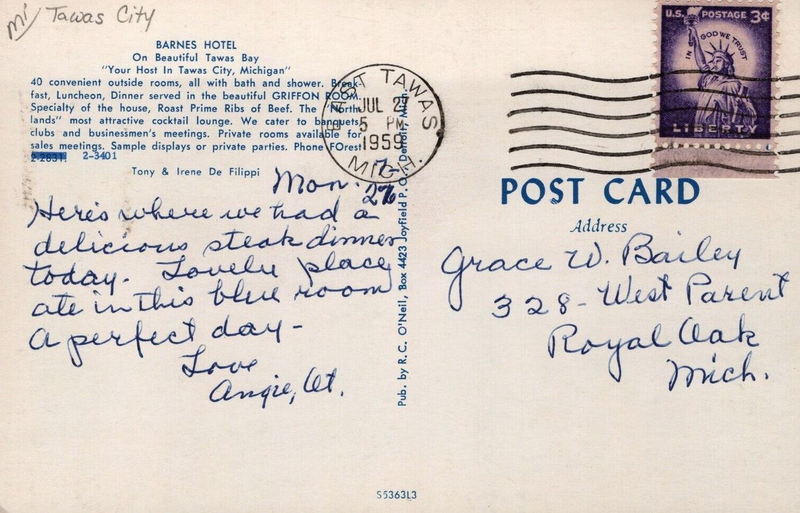 mi/ Tawas City
BARNES HOTEL
On Beautiful Tawas Bay
"Your Host In Tawas City, Michigan"
40 convenient outside rooms, all with bath and shower. Break-
fast, Luncheon, Dinner served in the beautiful GRIFFON ROOM.
Specialty of the house, Roast Prime Ribs of Beef. The "North-
lands" most attractive cocktail lounge. We cater to banquets,
clubs and businessmen's meetings. Private rooms available for
sales meetings. Sample displays or private parties. Phone FOrest
2-2031. 2-3401
Tony & Irene De Filippi
Mon.
7-
27
Here's where we had a
delicious steak dinner
today. Lovely place
ate in this blue room
a perfect day -
Love
Angie, Et.
Pub. by R. C. O'Neil, Box 4423 Joyfield P. O., Detroit, Mich.
EAST TAWAS
JUL 27
5 PM
1959
MICH.
U.S. POSTAGE 3¢
IN GOD WE TRUST
LIBERTY
POST CARD
Address
Grace W. Bailey
328 - West Parent
Royal Oak
Mich.
S5363L3